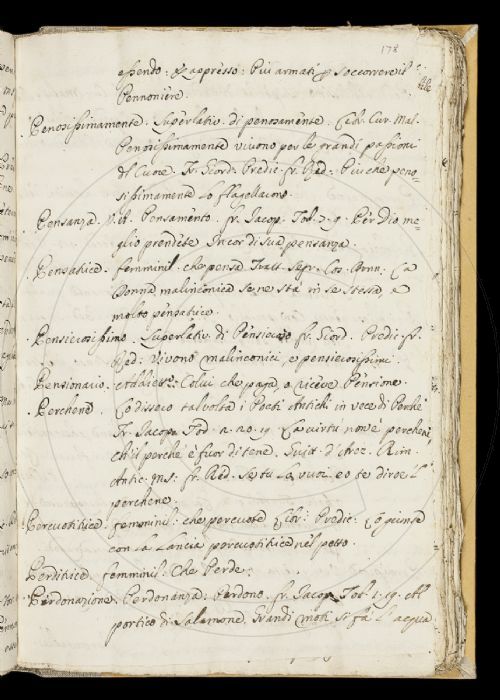 178
essendo: & appresso: Piu armati p soccorrere il
Pennoniere.
Penosissimamente. Superlativ. di penosamente. Lib. Cur. Mal.
Penosissimamente vivono per le grandi passioni
del Cuore. Fr. Giord. Predic. fr. Red. Piu che peno=
sissimamente lo flagellavono.
Pensanza. V. A. Pensamento. fr. Jacop. Tod. 2. 9. Per Dio me=
glio prendete Ancor di sua pensanza.
Pensatrice. femminil. che pensa Tratt. segr. Cos. Donn: La
Donna malinconica se ne sta in se stessa, e
molto pensatrice.
Pensierosissimo. Superlativ. di Pensieroso fr. Giord. Predic. fr.
Red: Vivono malinconici, e pensierosissimi
Pensionario. Colui che paga, o riceve Pensione.
Perchene. Lo dissero talvolta i Poeti Antichi in vece di Perche
Fr. Jacop. Tod. 2. 20. 19. La virtu non è perchene
ch'il perche è fuor di tene. Guitt. d'Arez. Rim.
Antic. ms: fr. Red. se tu la vuoi eo te diroe l
perchene.
Percuotitrice. femminil: che percuote Libr: Predic: Lo giunse
con la Lancia percuotitrice nel petto.
Perditrice. femminil: Che Perde.
Perdonazione. Perdonanza: Perdono. fr. Jacop. Tod. 1. 19. Al
portico di Salamone, Grandi moti si fa l'acqua